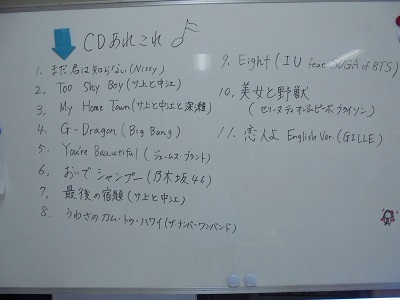 CDあれこれ
1. まだ君は知らない(Nissy)
2. Too Shy Boy(サ上と中江)
3. My Home Town(サ上と中江と深瀬)
4. G-Dragon (Big Bang)
5. You're Beautiful (ジェームス・ブラント)
6. おいでシャンプー(乃木坂46)
7. 最後の宿題(サ上と中江)
8. うわさのカム・トゥ・ハワイ(ザ ナンバーワンバンド)
9. Eight (IU feat SUGA of BTS)
10. 美女と野獣
(セリーヌ・ディオン&ピーボ・ブライソン)
11. 恋人よ English Ver. (GILLE)